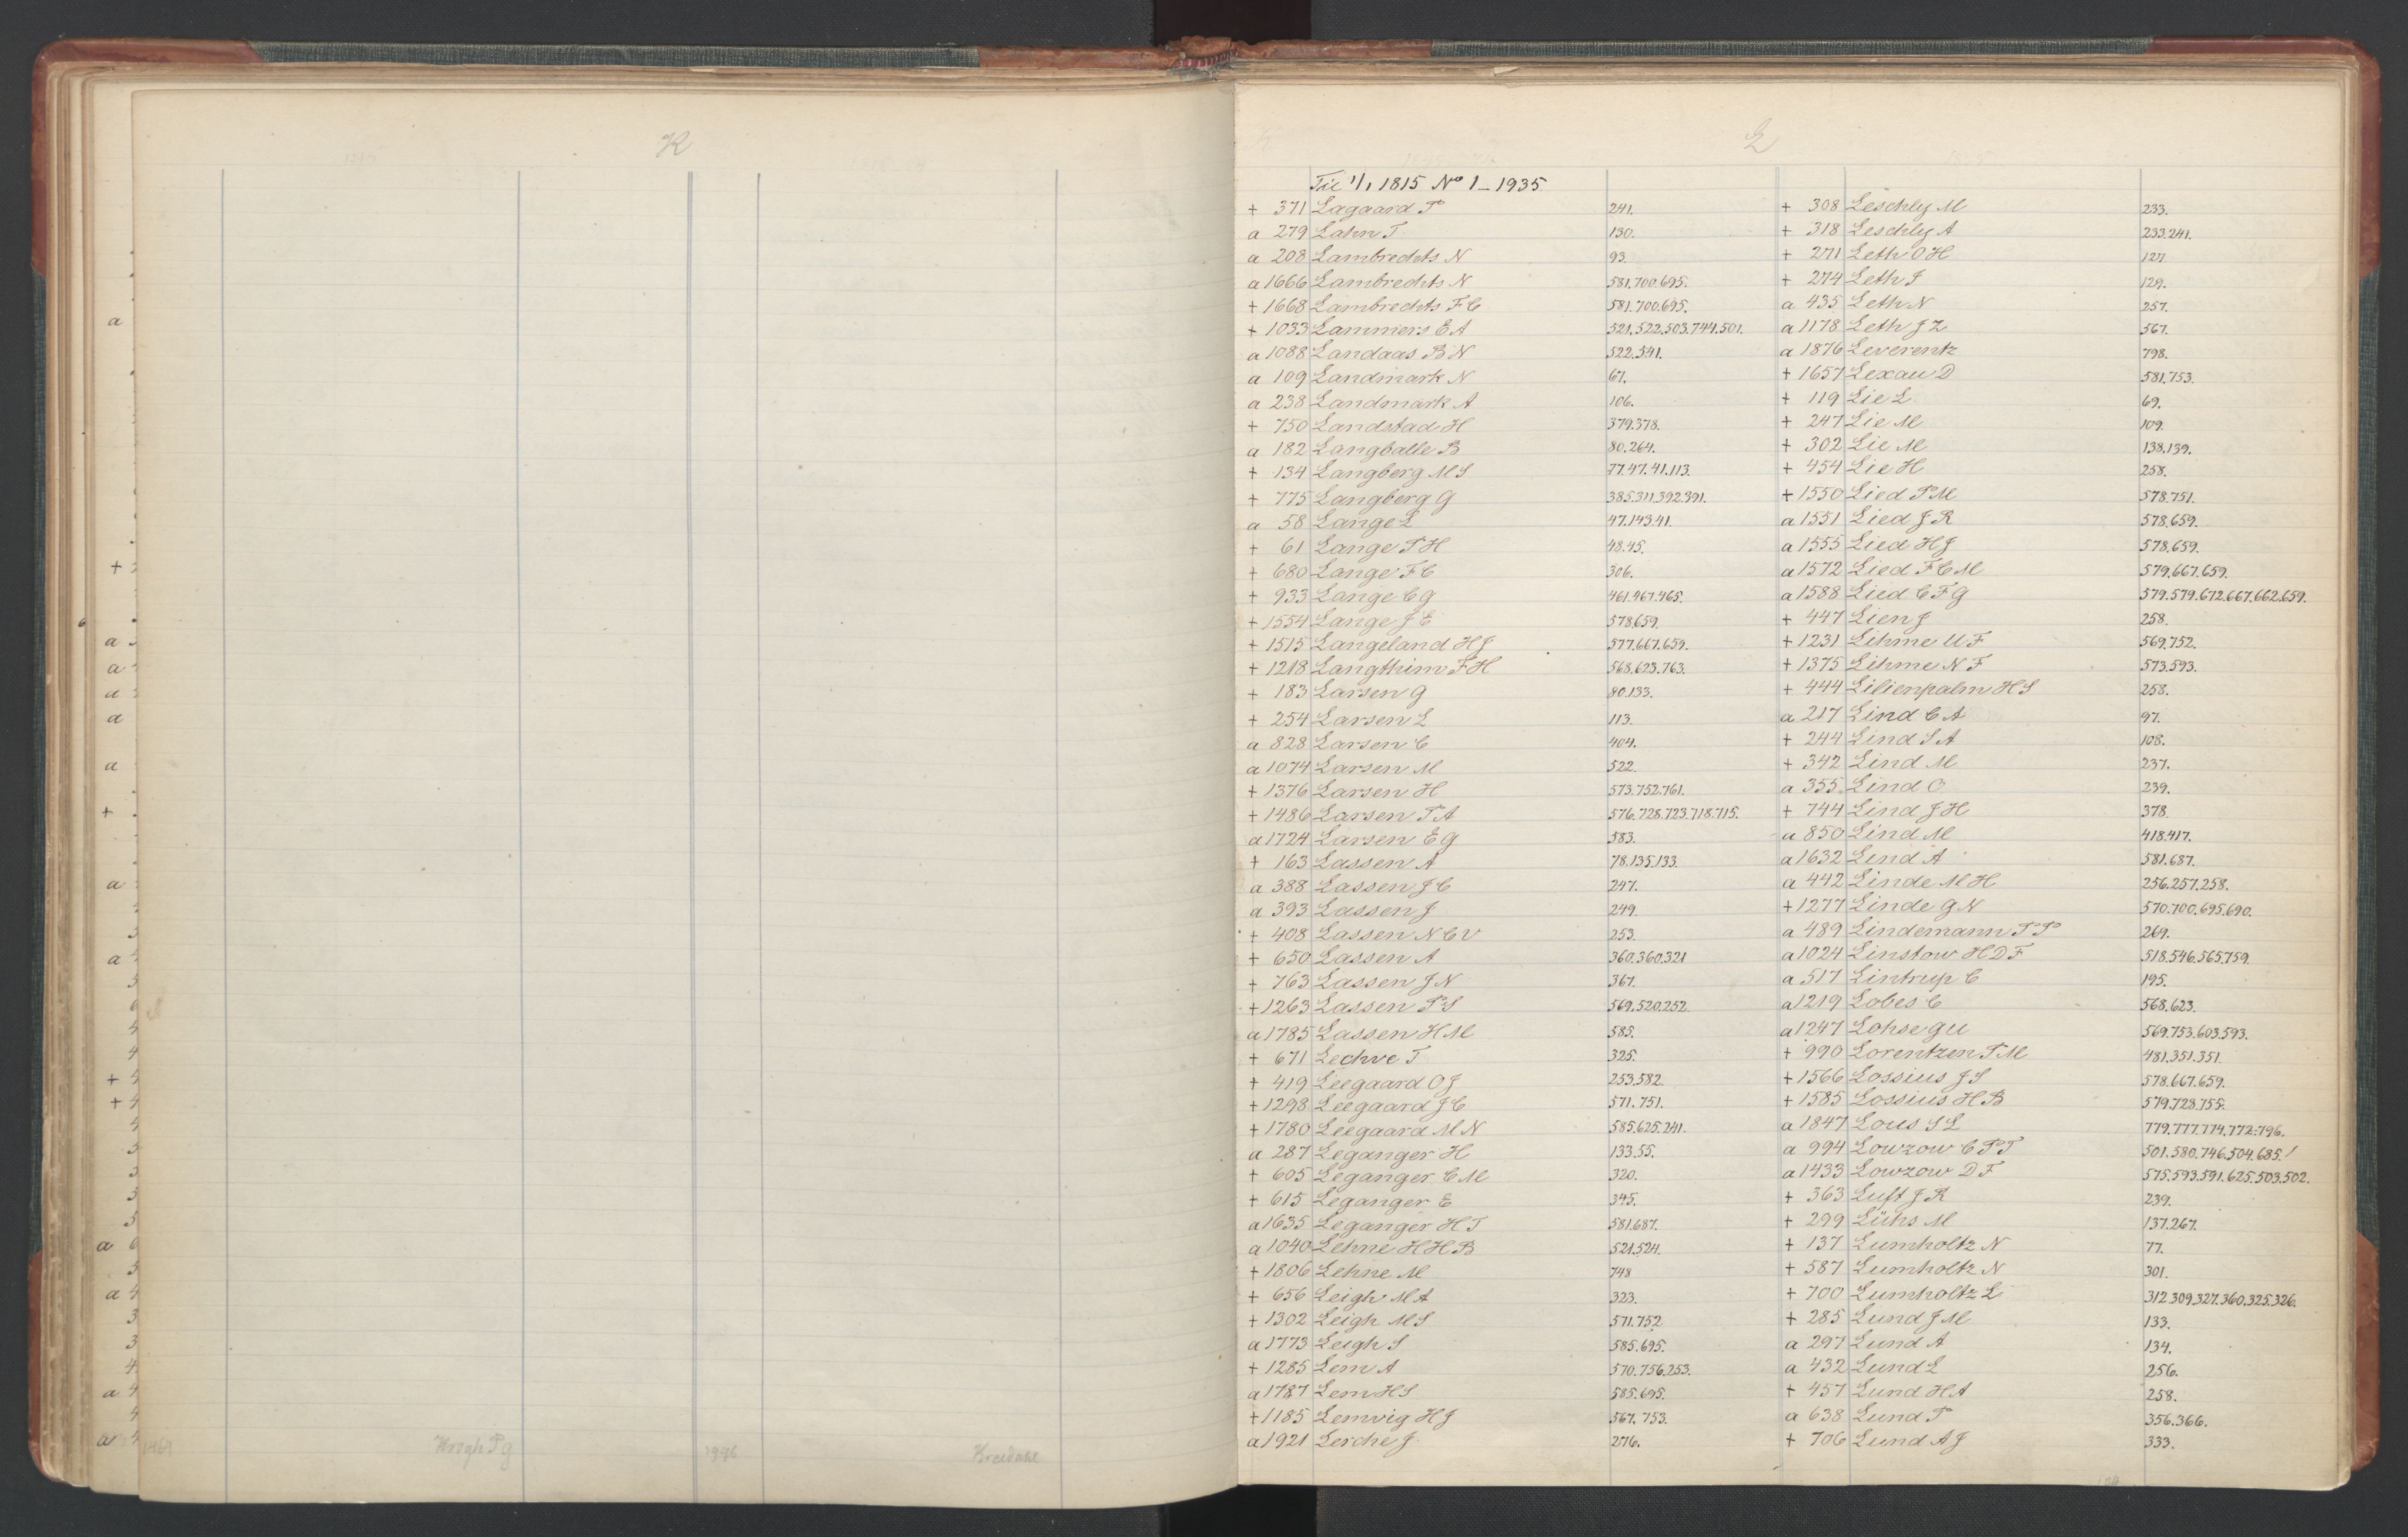 K
1469 Krogh P g 1946 Kreidahl
L
Til 1/1 1815 No 1_1935
+ 371 Lagaard P 241.
a 279 Lahn T 130.
a 208 Lambrechts N 93.
a 1666 Lambrechts N 581.700.695.
+ 1668 Lambrechts F C 581.700.695.
+ 1033 Lammers E A 521.522.503.744.501.
a 1088 Landaas B N 522.541.
a 109 Landmark N 67.
a 238 Landmark A 106.
+ 750 Landstad H 379.378.
a 182 Langballe B 80.264.
+ 134 Langberg M S 77.47.41.113.
+ 775 Langberg G 385.311.392.391.
a 58 Lange L 47.143.41.
+ 61 Lange P H 48.45.
+ 680 Lange F C 306.
+ 933 Lange C G 461.467.465.
+ 1554 Lange J E 578.659.
+ 1515 Langeland H J 577.667.659.
+ 1218 Langthim F H 568.623.763.
+ 183 Larsen G 80.133.
+ 254 Larsen L 113.
a 828 Larsen C 404.
a 1074 Larsen M 522.
+ 1376 Larsen H 573.752.761.
+ 1486 Larsen P A 576.728.723.718.715.
a 1724 Larsen E G 583.
+ 163 Lassen A 78.135.133.
a 388 Lassen J C 247.
a 393 Lassen J 249.
+ 408 Lassen N C V 253.
+ 650 Lassen A 360.360.321
+ 763 Lassen J N 367.
+ 1263 Lassen P S 569.520.252.
a 1785 Lassen H M 585.
+ 671 Lechve T 325.
+ 419 Leegaard O J 253.582.
+ 1298 Leegaard J C 571.751.
+ 1780 Leegaard M N 585.625.241.
a 287 Leganger H 133.55.
+ 605 Leganger C M 320.
+ 615 Leganger E 345.
a 1635 Leganger H T 581.687.
a 1040 Lehne H H B 521.524.
+ 1806 Lehne M 748
+ 656 Leigh M A 323.
+ 1302 Leigh M S 571.752
a 1773 Leigh S 585.695.
+ 1285 Lem A 570.756.253.
a 1787 Lem H S 585.695.
+ 1185 Lemvig H J 567.753.
a 1921 Lerche J 276.
+ 308 Leschly M 233.
+ 318 Leschly A 233.241.
+ 271 Leth O H 127
+ 274 Leth J 129.
a 435 Leth N 257.
a 1178 Leth J Z 567.
a 1876 Leverentz 798.
+ 1657 Lexau D 581.753.
+ 119 Lie L 69.
+ 247 Lie M 109.
+ 302 Lie M 138.139.
+ 454 Lie H 258.
+ 1550 Lied P M 578.751.
a 1551 Lied J R 578.659.
a 1555 Lied H J 578.659.
a 1572 Lied F C M 579.667.659.
a 1588 Lied C F G 579.579.672.667.662.659.
+ 447 Lien J 258.
+ 1231 Lihme U F 569.752.
+ 1375 Lihme N F 573.593.
+ 444 Lilienpalm H S 258.
a 217 Lind C A 97.
+ 244 Lind S A 108.
+ 342 Lind M 237.
a 355 Lind O 239.
+ 744 Lind J H 378
a 850 Lind M 418.417.
a 1632 Lind A 581.687.
a 442 Linde M H 256.257.258.
+ 1277 Linde G N 570.700.695.690.
a 489 Lindemann P P 269.
a 1024 Linstow H D F 518.546.565.759.
a 517 Lintrup C 195.
a 1219 Lobes C 568.623.
a 1247 Lohse G U 569.753.603.593.
+ 990 Lorentzen P M 481.351.351.
+ 1566 Lossius J S 578.667.659.
+ 1585 Lossius H B 579.728.755.
a 1847 Lous S L 779.777.774.772.796.
a 994 Lowzow C P T 501.580.746.504.685.
a 1433 Lowzow D F 575.593.591.625.503.502.
+ 363 Luft J R 239.
+ 299 Lühs M 137.267.
+ 137 Lumholtz N 77.
+ 587 Lumholtz N 301.
+ 700 Lumholtz L 312.309.327.360.325.326.
+ 285 Lund J M 133.
a 297 Lund A 134.
a 432 Lund L 256.
+ 457 Lund H A 258.
a 638 Lund P 356.366.
+ 706 Lund A J 333.